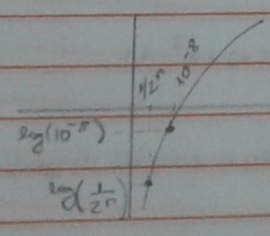 1/2ⁿ
10⁻⁸
log(10⁻⁸)
log(1/2ⁿ)